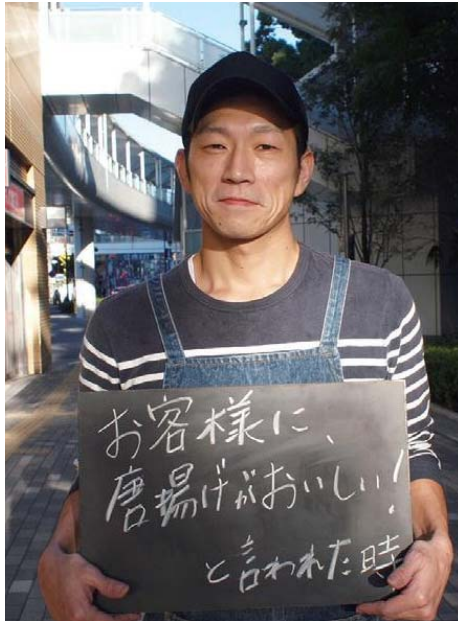 お客様に、
唐揚げがおいしい!
と言われた時